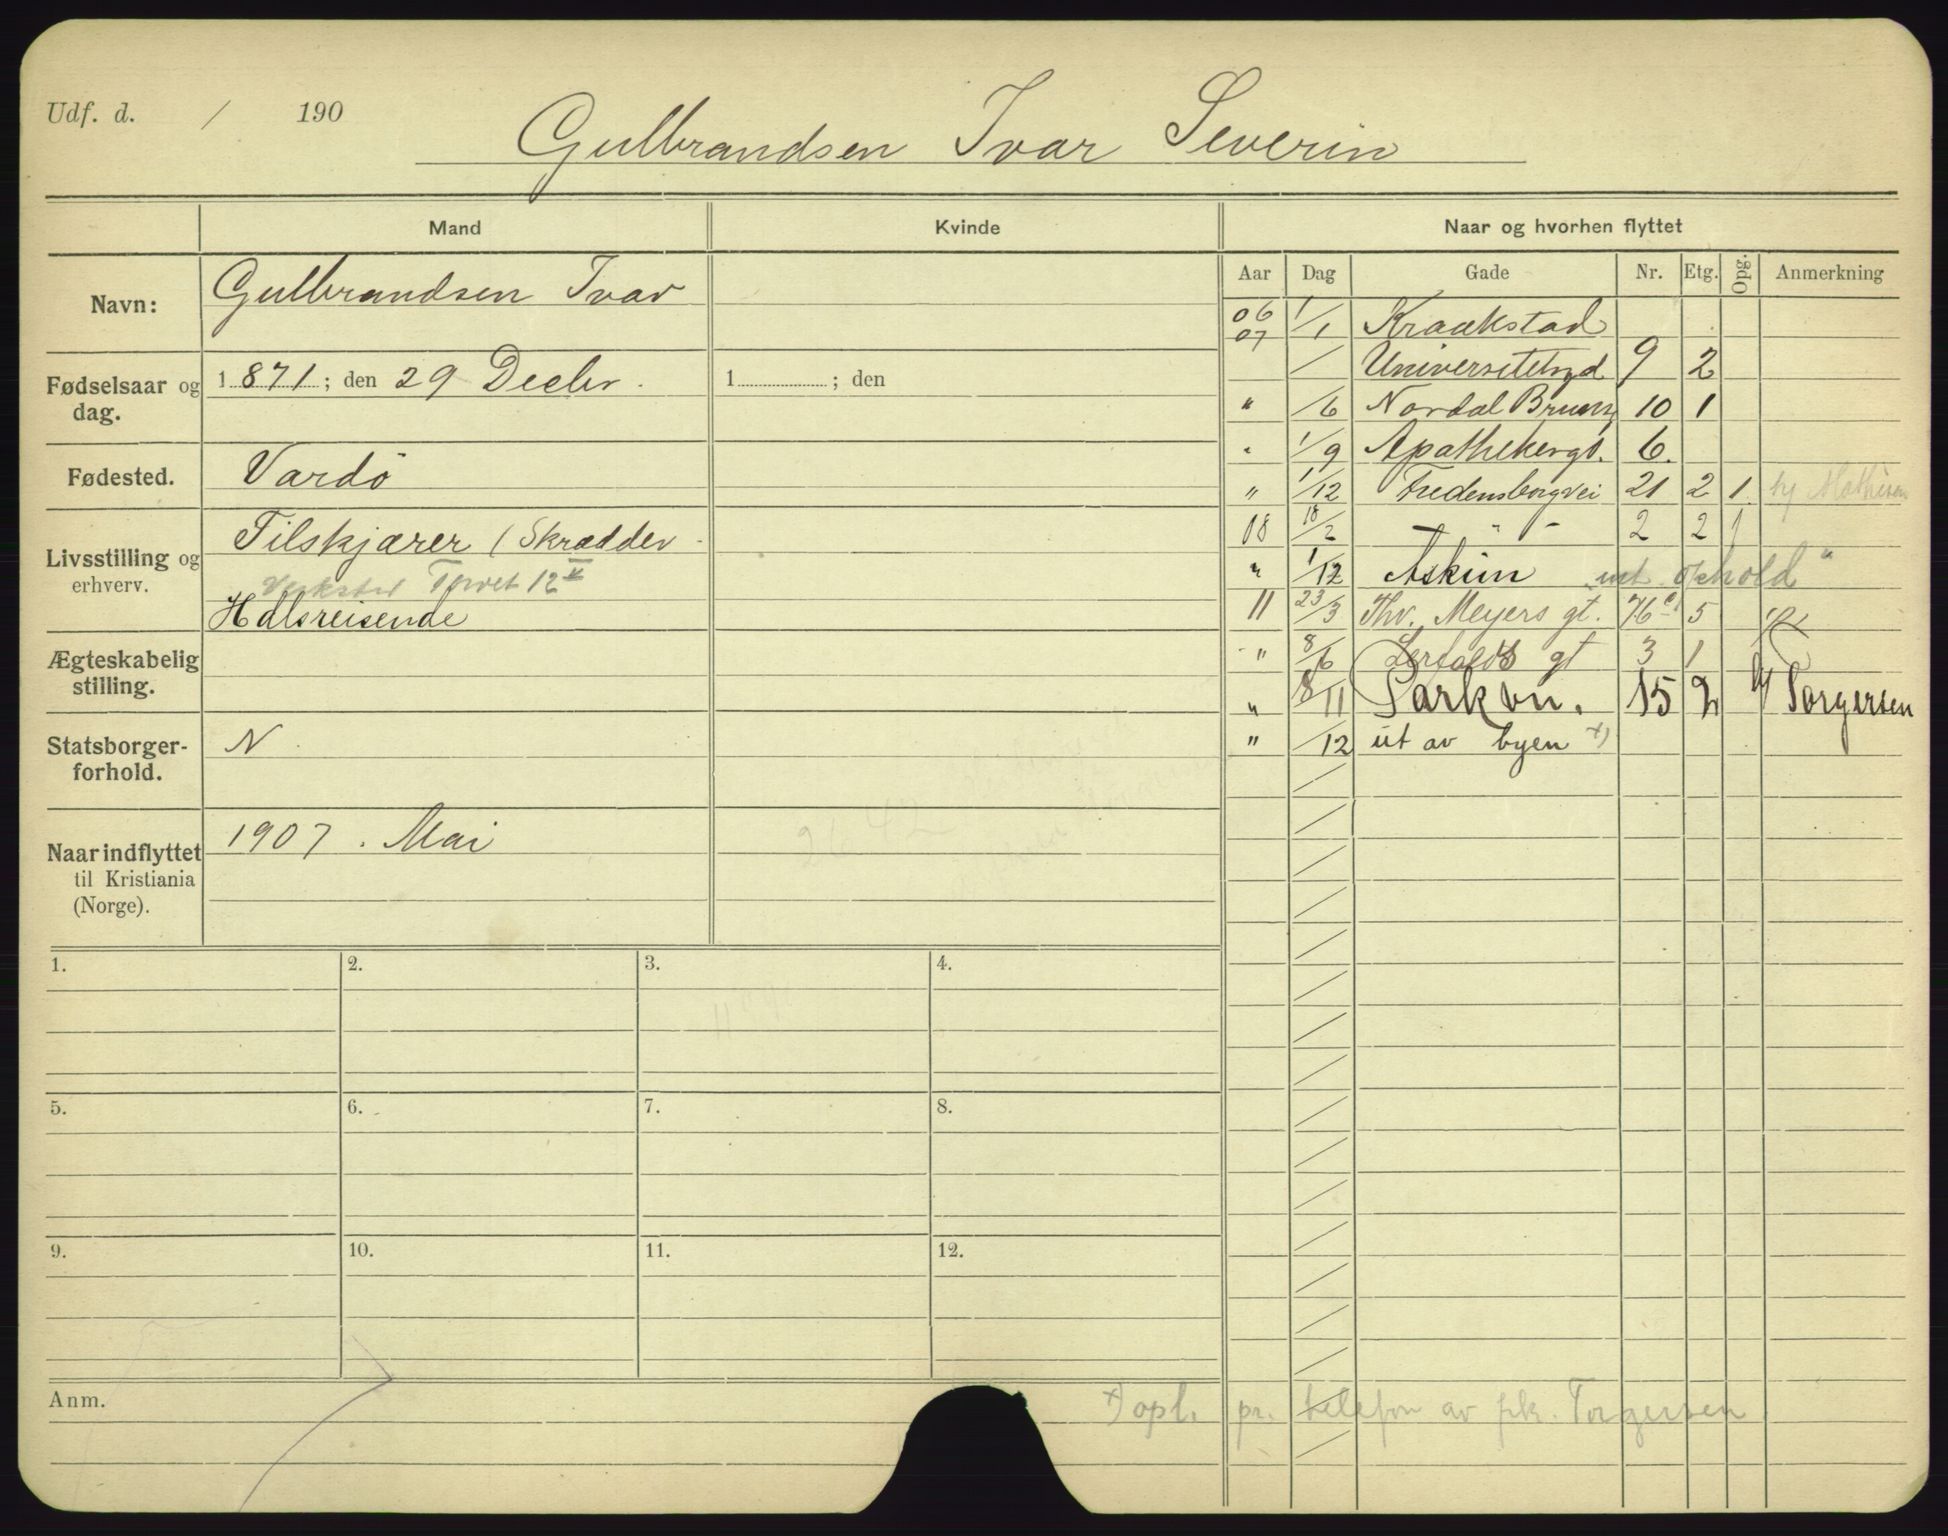 Udf. d. / 190
Gulbrandsen Ivar Severin
Mand Kvinde Naar og hvorhen flyttet
Aar Dag Gade Nr. Etg. Opg. Anmerkning
Navn: Gulbrandsen Ivar
Fødselsaar og dag. 1871; den 29 Decbr. 1 ; den
Fødested. Vardö
Livsstilling og erhverv. Tilskjærer (Skrædder
Verksted Torvet 12
Hdlsreisende
Ægteskabelig stilling.
Statsborgerforhold. N.
Naar indflyttet til Kristiania (Norge). 1907. Mai
06 07 1/1 Kraakstad
/ Universitetsgd 9 2
" /6 Nordal Brunsg 10 1
" 1/9 Apothekergt. 6.
" 1/12 Fredensborgvei 21 2 1. hj Mathisen
08 18/2 - " - 2 2 1
" 1/12 Askim "
11 23/3 Thv. Meyers gt. 76 c 5
" 8/6 gt 3 1
" 8/11 Parkvn. 15 2 h/ Torgersen
" /12 ut av byen x)
1. 2. 3. 4.
5. 6. 7. 8.
9. 10. 11. 12.
Anm. x) opl. pr. telefon av frk. Torgersen